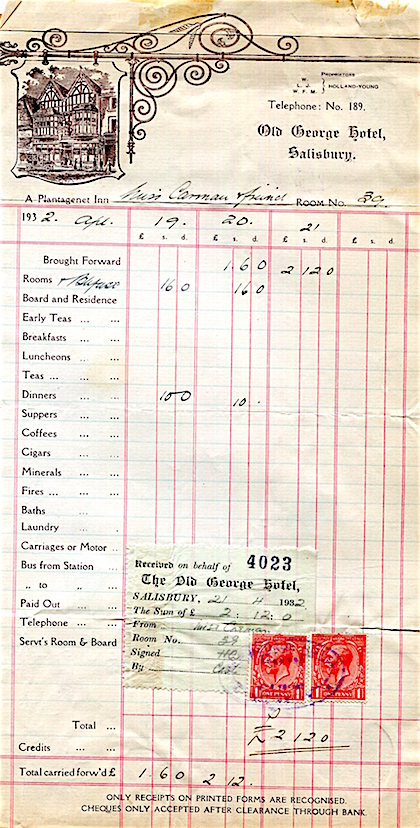 PROPRIETORS
W.
L. J. } HOLLAND-YOUNG
W. F. M.
Telephone: No. 189.
Old George Hotel,
Salisbury.
A Plantagenet Inn Miss Carman & friend ROOM No. 39
1932. Apl. 19. 20. 21
£ s. d. £ s. d. £ s. d. £ s. d.
Brought Forward 1 . 6 0 2 12 0
Rooms & 16 0 16 0
Board and Residence
Early Teas ... ...
Breakfasts ... ...
Luncheons ... ...
Teas ... ... ...
Dinners ... ... 10 0 10 .
Suppers ... ...
Coffees ... ...
Cigars ... ...
Minerals ... ...
Fires ... ... ...
Baths ...
Laundry ...
Carriages or Motor ..
Bus from Station ...
„ to „ ...
Paid Out ... ...
Telephone ... ...
Servt's Room & Board
Received on behalf of 4023
The Old George Hotel,
SALISBURY, 21 . 4 1932
The Sum of £ 2 . 12 : 0
From Miss Carman
Room No. 39
Signed
By
ONE PENNY
ONE PENNY
Total ... 2 12 0
Credits ... ...
Total carried forw'd £ 1 . 6 0 2 12 .
ONLY RECEIPTS ON PRINTED FORMS ARE RECOGNISED.
CHEQUES ONLY ACCEPTED AFTER CLEARANCE THROUGH BANK.